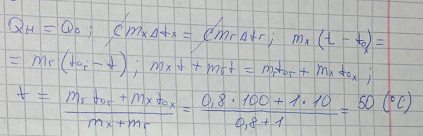 Qн = Qо; c̸mₓΔtₓ = c̸mᵣΔtᵣ; mₓ(t - t₀ₓ) =
= mᵣ(t₀ᵣ - t); mₓt + mᵣt = mᵣt₀ᵣ + mₓt₀ₓ;
t = (mᵣt₀ᵣ + mₓt₀ₓ)/(mₓ + mᵣ) = (0,8·100 + 1·10)/(0,8 + 1) = 50 (°C)